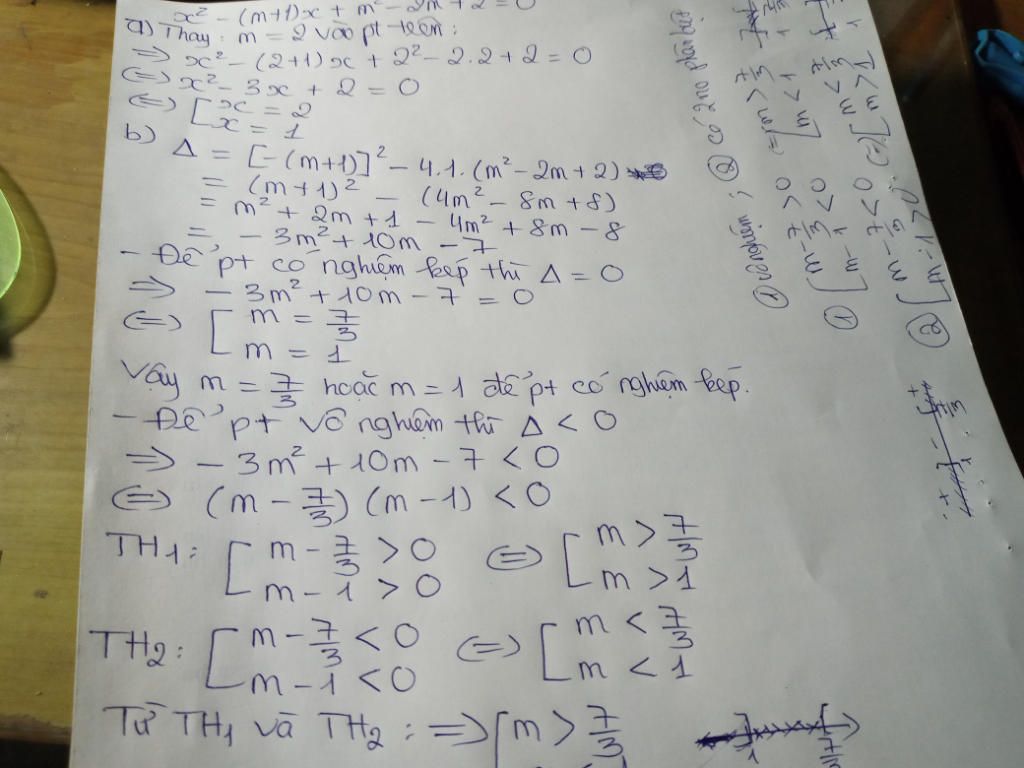 x² - (m+1)x + m² - 2m + 2 = 0
a) Thay: m = 2 vào pt trên:
⇒ x² - (2+1)x + 2² - 2.2 + 2 = 0
⇔ x² - 3x + 2 = 0
⇔ [ x = 2
x = 1
b) Δ = [-(m+1)]² - 4.1.(m² - 2m + 2)
= (m+1)² - (4m² - 8m + 8)
= m² + 2m + 1 - 4m² + 8m - 8
= -3m² + 10m - 7
- Để pt có nghiệm kép thì Δ = 0
⇒ -3m² + 10m - 7 = 0
⇔ [ m = 7/3
m = 1
Vậy m = 7/3 hoặc m = 1 để pt có nghiệm kép.
- Để pt vô nghiệm thì Δ < 0
⇒ -3m² + 10m - 7 < 0
⇔ (m - 7/3) (m - 1) < 0
TH1: [ m - 7/3 > 0 ⇔ [ m > 7/3
m - 1 > 0 m > 1
TH2: [ m - 7/3 < 0 ⇔ [ m < 7/3
m - 1 < 0 m < 1
Từ TH1 và TH2: ⇒ [ m > 7/3
1 7/3
② có 2 no phân biệt
①
① [ m - 7/3 > 0 ⇔ [ m > 7/3
m - 1 < 0 m < 1
② [ m - 7/3 < 0 ⇔ [ m < 7/3
m - 1 > 0 m > 1